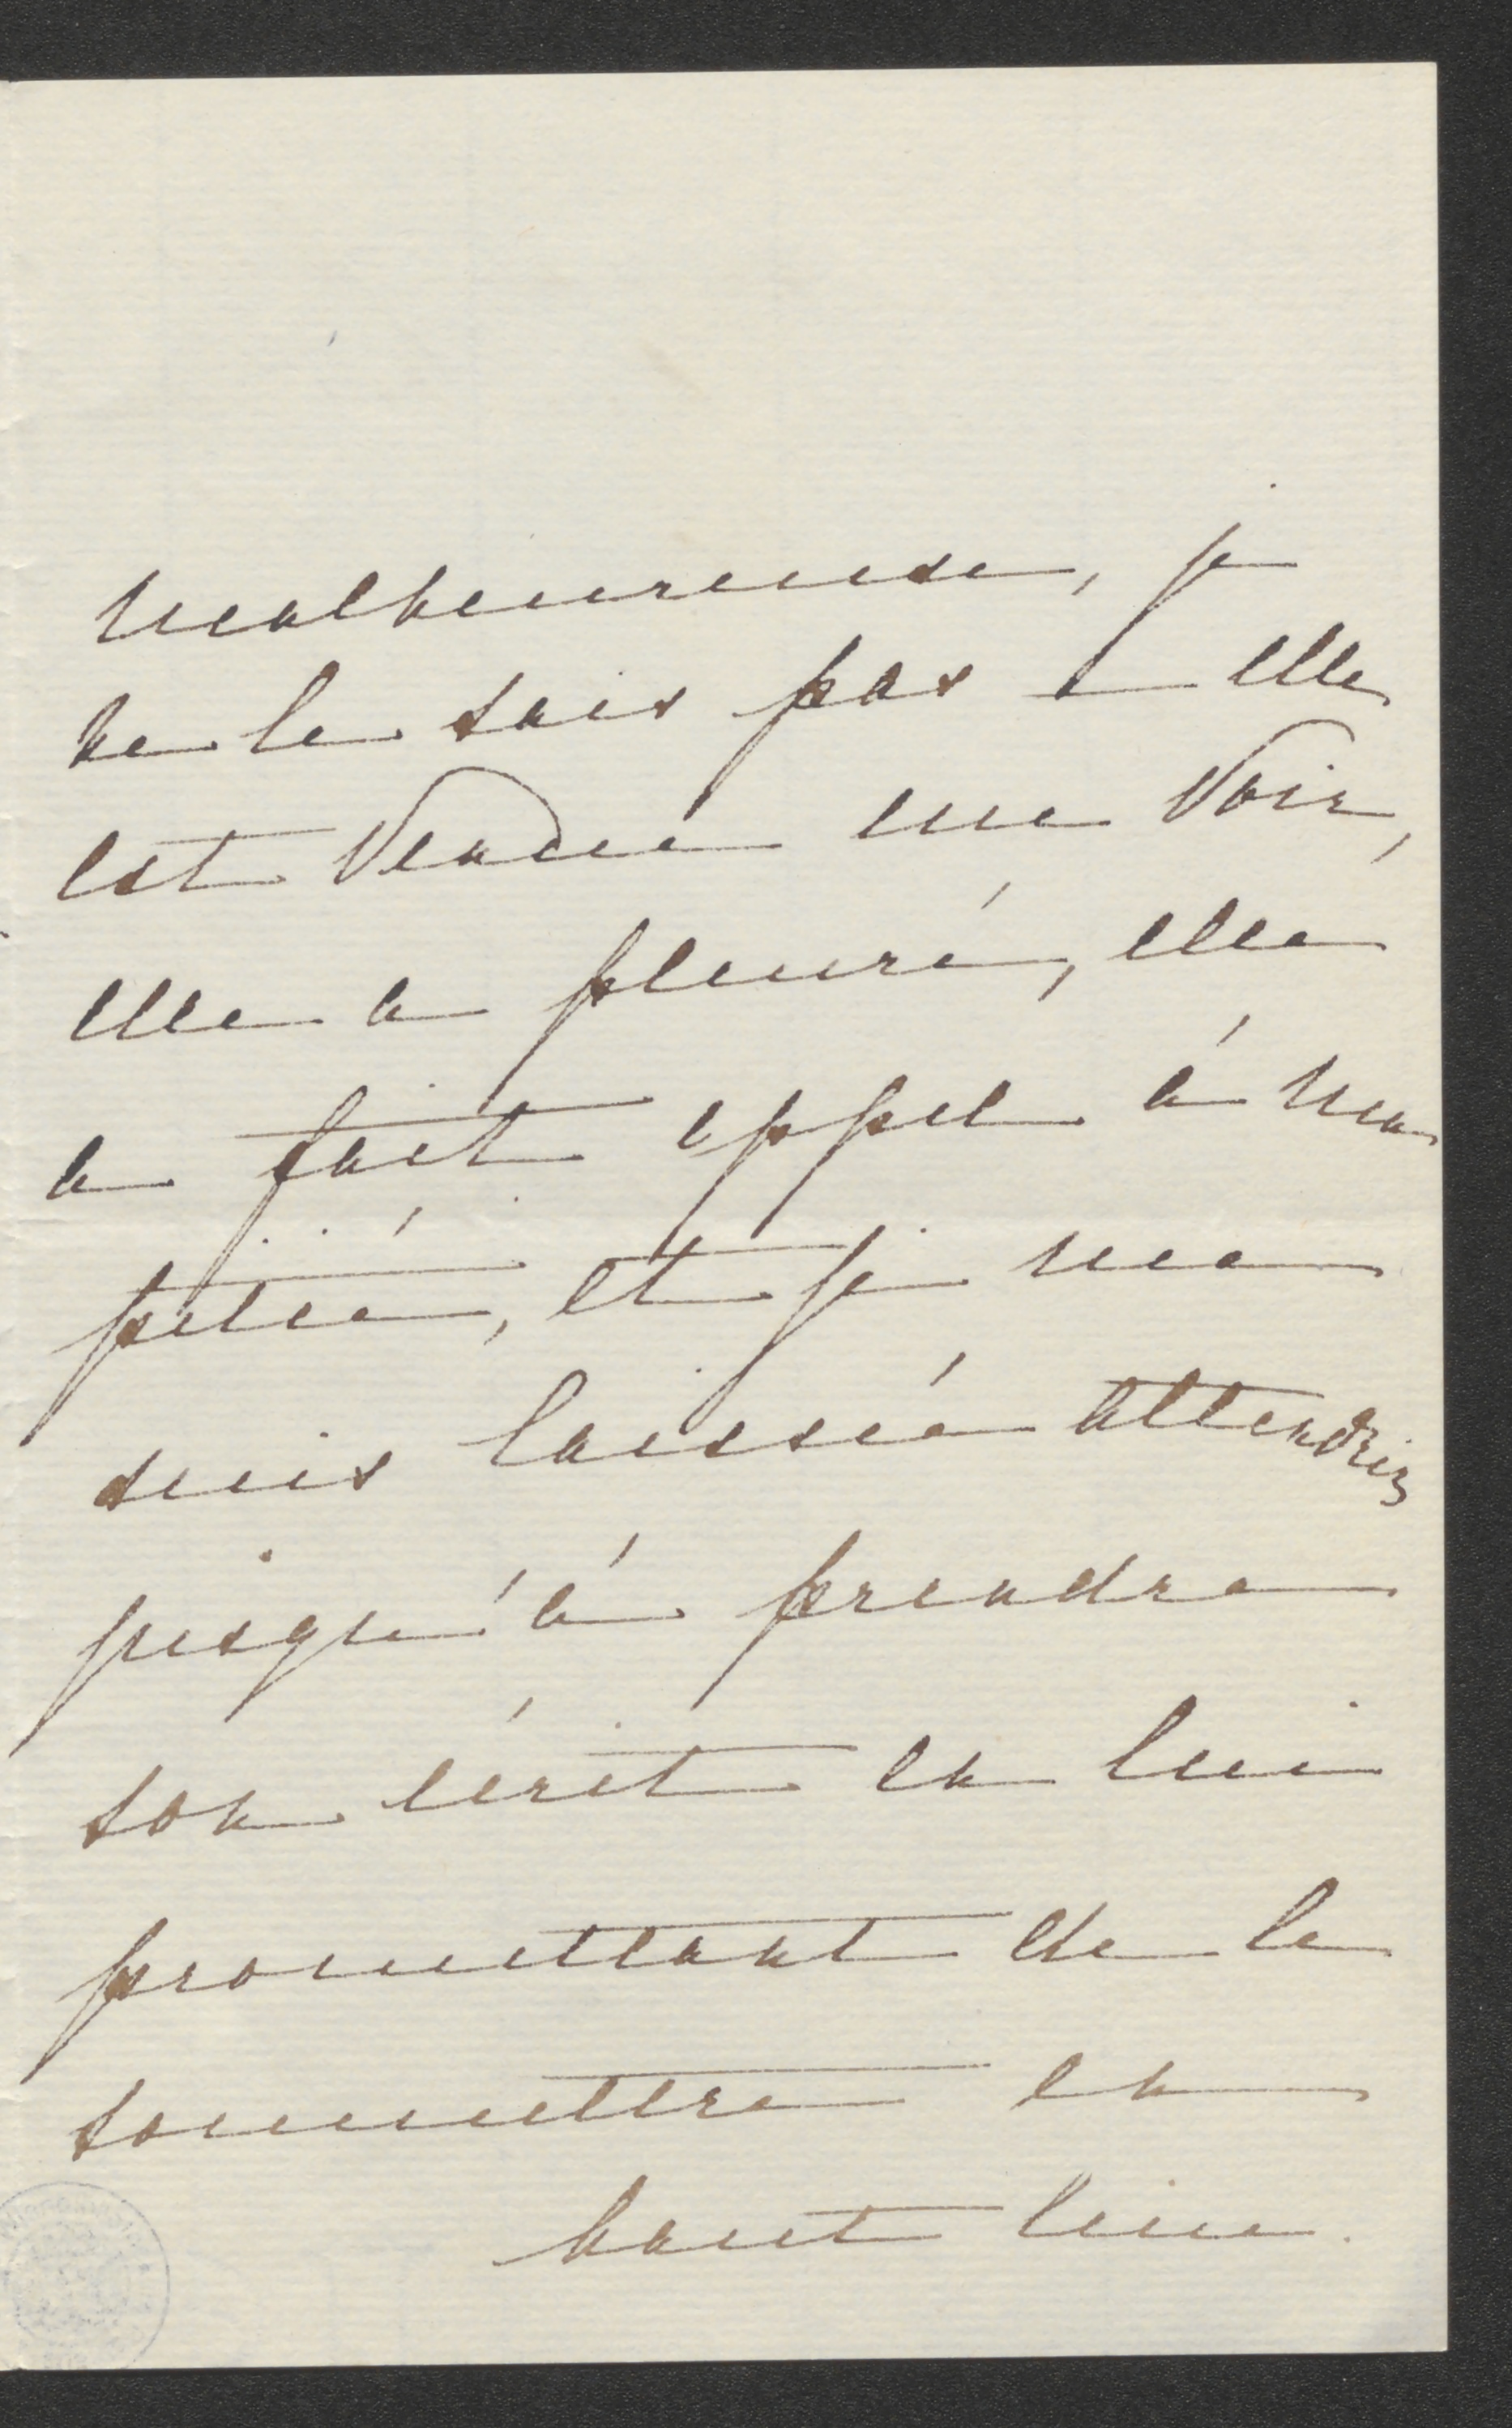 malheureuse, je
ne le sais pas – elle
est venue me voir,
elle a pleuré, elle
a fait appel à ma
pitié, et je me
suis laissé attendrir
jusqu'à prendre
son écrit en lui
promettant de le
soumettre en
haut lieu.